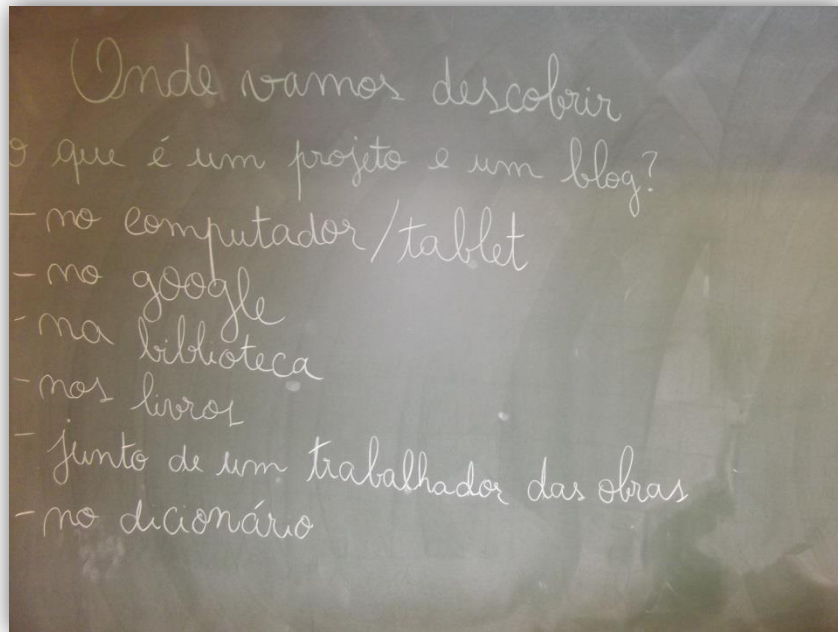 Onde vamos descobrir
o que é um projeto e um blog?
- no computador/tablet
- no google
- na biblioteca
- nos livros
- junto de um trabalhador das obras
- no dicionário